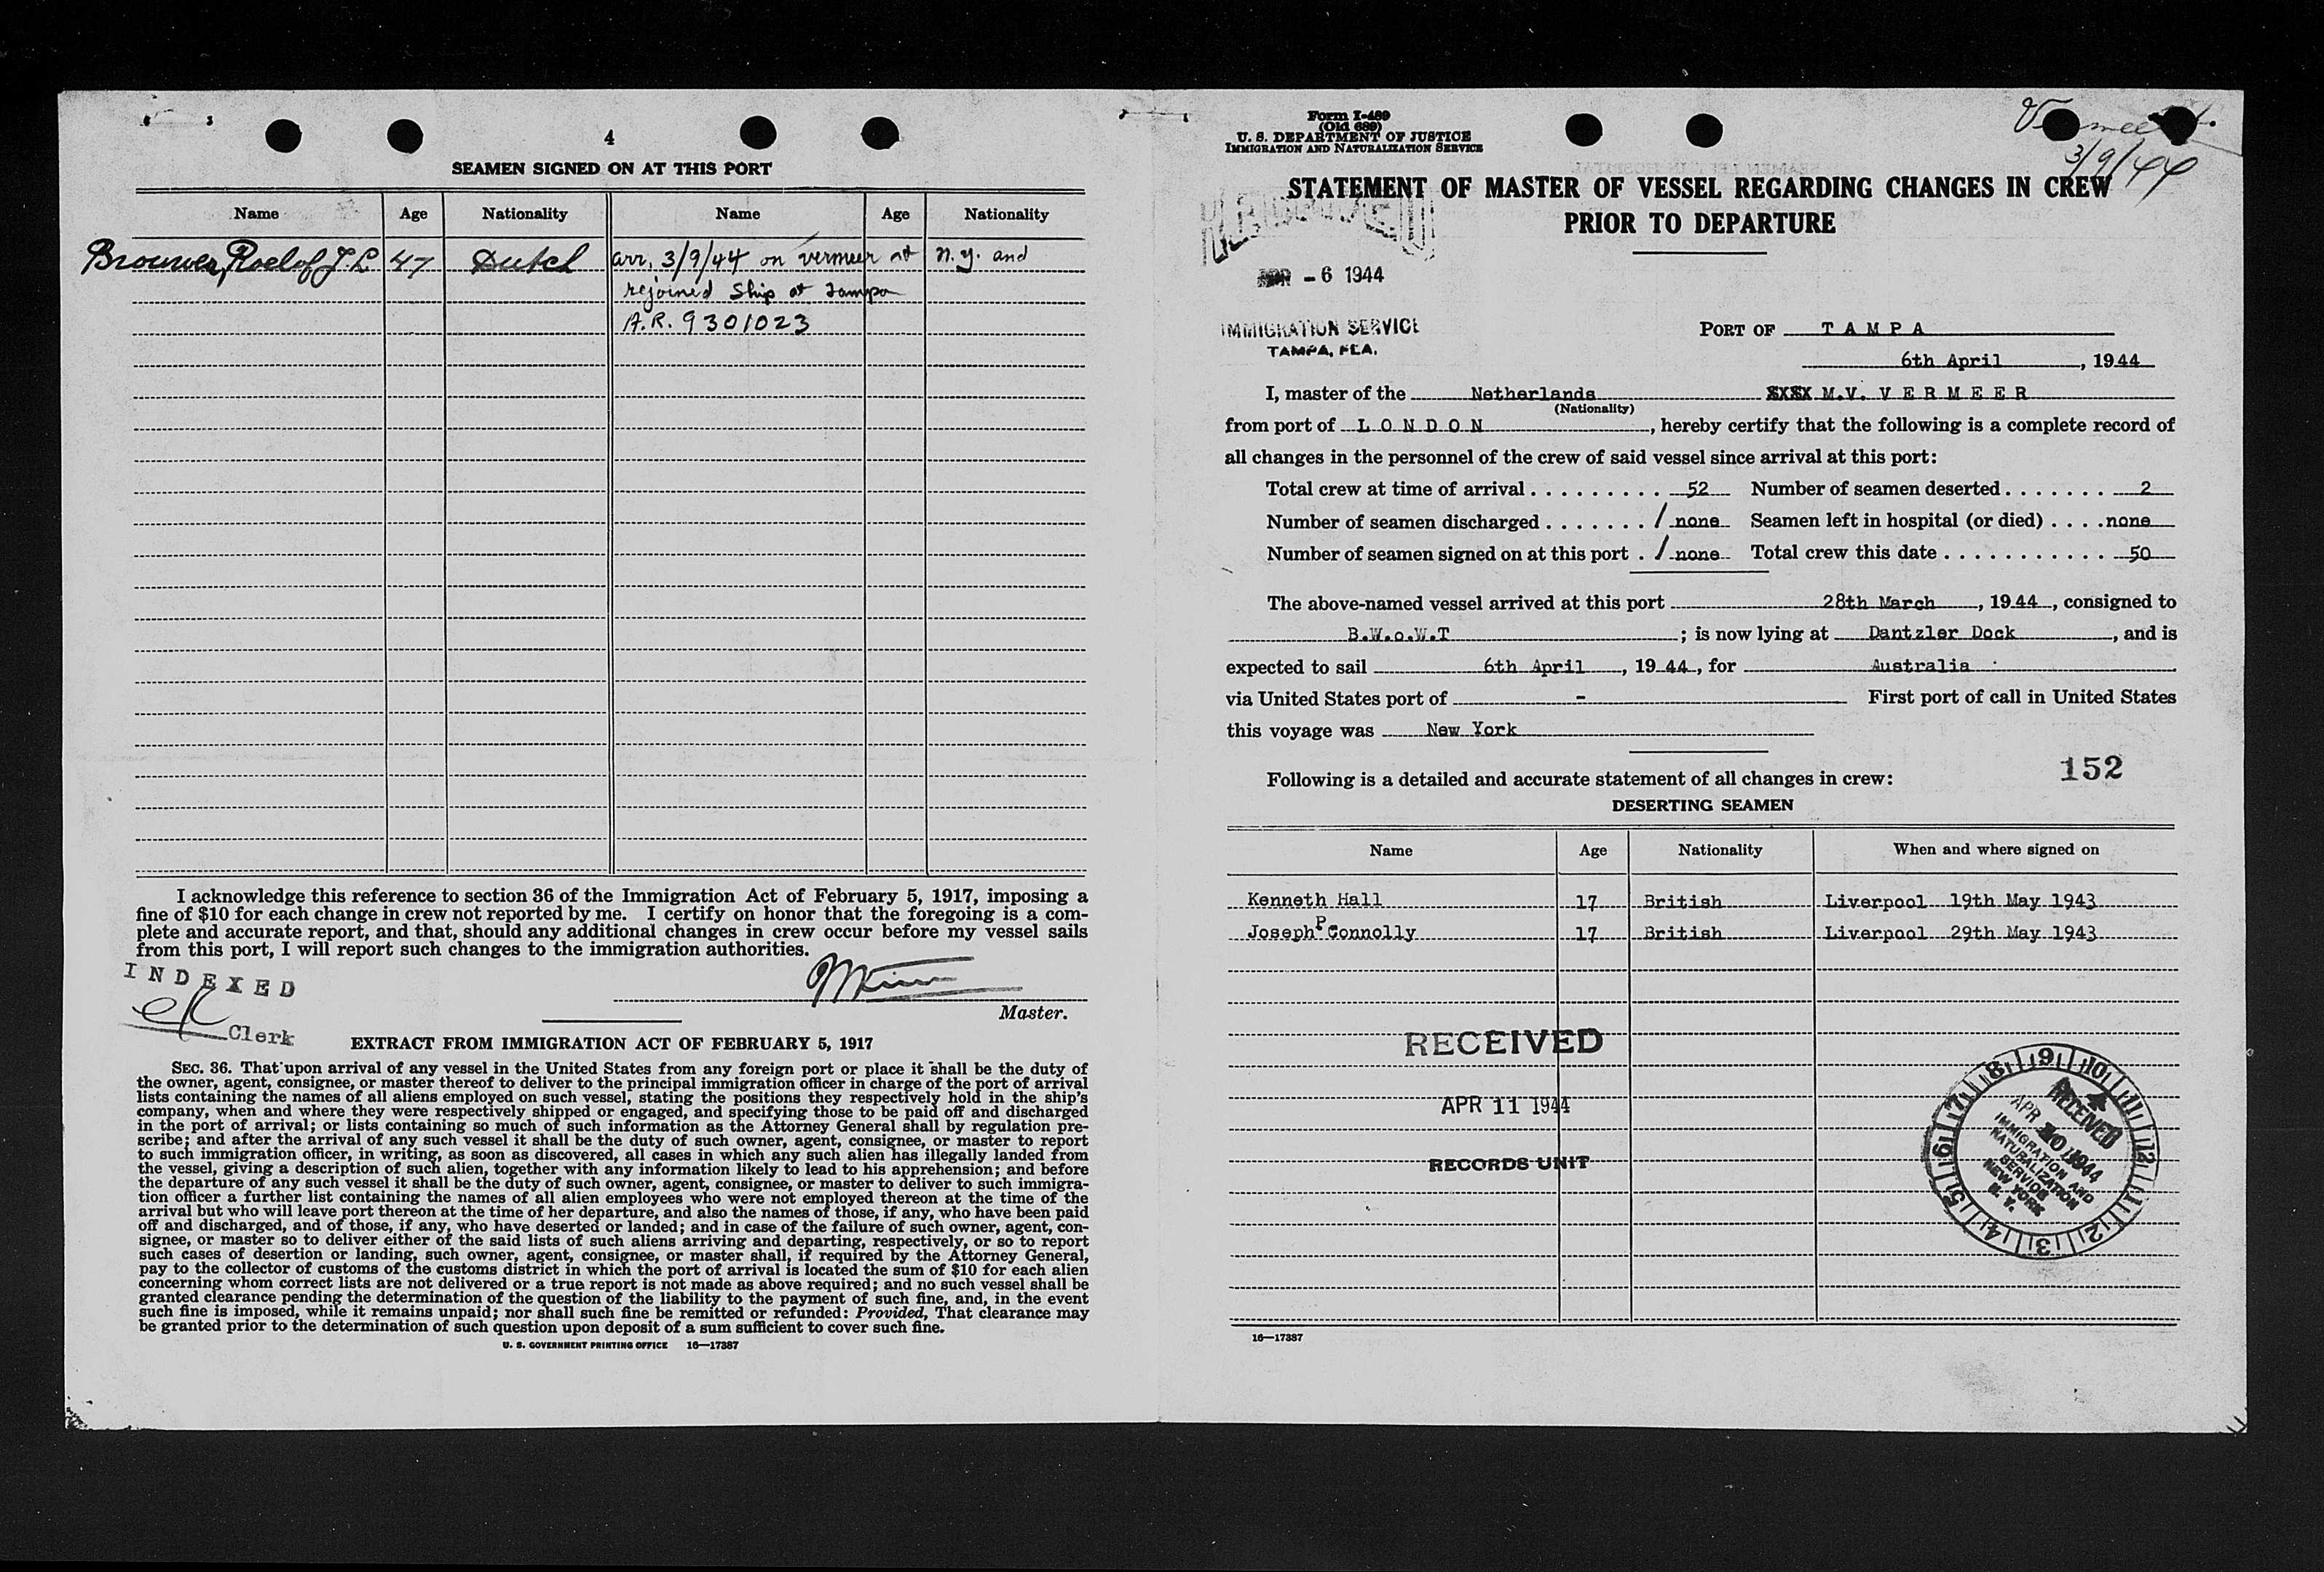 4
SEAMEN SIGNED ON AT THIS PORT
Name Age Nationality Name Age Nationality
Brouwer, Roelof J. L 47 Dutch arr. 3/9/44 on vermeer at n.y. and
rejoined Ship at Tampa
A.R. 9301023
I acknowledge this reference to section 36 of the Immigration Act of February 5, 1917, imposing a
fine of $10 for each change in crew not reported by me. I certify on honor that the foregoing is a com-
plete and accurate report, and that, should any additional changes in crew occur before my vessel sails
from this port, I will report such changes to the immigration authorities.
INDEXED
Clerk
Master.
EXTRACT FROM IMMIGRATION ACT OF FEBRUARY 5, 1917
SEC. 36. That upon arrival of any vessel in the United States from any foreign port or place it shall be the duty of
the owner, agent, consignee, or master thereof to deliver to the principal immigration officer in charge of the port of arrival
lists containing the names of all aliens employed on such vessel, stating the positions they respectively hold in the ship's
company, when and where they were respectively shipped or engaged, and specifying those to be paid off and discharged
in the port of arrival; or lists containing so much of such information as the Attorney General shall by regulation pre-
scribe; and after the arrival of any such vessel it shall be the duty of such owner, agent, consignee, or master to report
to such immigration officer, in writing, as soon as discovered, all cases in which any such alien has illegally landed from
the vessel, giving a description of such alien, together with any information likely to lead to his apprehension; and before
the departure of any such vessel it shall be the duty of such owner, agent, consignee, or master to deliver to such immigra-
tion officer a further list containing the names of all alien employees who were not employed thereon at the time of the
arrival but who will leave port thereon at the time of her departure, and also the names of those, if any, who have been paid
off and discharged, and of those, if any, who have deserted or landed; and in case of the failure of such owner, agent, con-
signee, or master so to deliver either of the said lists of such aliens arriving and departing, respectively, or so to report
such cases of desertion or landing, such owner, agent, consignee, or master shall, if required by the Attorney General,
pay to the collector of customs of the customs district in which the port of arrival is located the sum of $10 for each alien
concerning whom correct lists are not delivered or a true report is not made as above required; and no such vessel shall be
granted clearance pending the determination of the question of the liability to the payment of such fine, and, in the event
such fine is imposed, while it remains unpaid; nor shall such fine be remitted or refunded: Provided, That clearance may
be granted prior to the determination of such question upon deposit of a sum sufficient to cover such fine.
U. S. GOVERNMENT PRINTING OFFICE 16—17387
Form I-489
(Old 689)
U. S. DEPARTMENT OF JUSTICE
IMMIGRATION AND NATURALIZATION SERVICE
3/9/44
STATEMENT OF MASTER OF VESSEL REGARDING CHANGES IN CREW
PRIOR TO DEPARTURE
RECEIVED
APR - 6 1944
IMMIGRATION SERVICE
TAMPA, FLA.
PORT OF TAMPA
6th April, 1944
I, master of the Netherlands M.V. VERMEER
(Nationality)
from port of LONDON, hereby certify that the following is a complete record of
all changes in the personnel of the crew of said vessel since arrival at this port:
Total crew at time of arrival . . . . . . . . . . 52 Number of seamen deserted . . . . . . . 2
Number of seamen discharged . . . . . . . / none Seamen left in hospital (or died) . . . . none
Number of seamen signed on at this port . / none Total crew this date . . . . . . . . . . . . 50
The above-named vessel arrived at this port 28th March, 1944, consigned to
B.W.o.W.T ; is now lying at Dantzler Dock, and is
expected to sail 6th April, 1944, for Australia
via United States port of - First port of call in United States
this voyage was New York
152
Following is a detailed and accurate statement of all changes in crew:
DESERTING SEAMEN
Name Age Nationality When and where signed on
Kenneth Hall 17 British Liverpool 19th May 1943
Joseph P Connolly 17 British Liverpool 29th May 1943
RECEIVED
APR 11 1944
RECORDS UNIT
8 9 10 11 12 1 2 3 4 5 6 7
RECEIVED
APR 10 1944
IMMIGRATION AND
NATURALIZATION
SERVICE
NEW YORK
N. Y.
16—17387